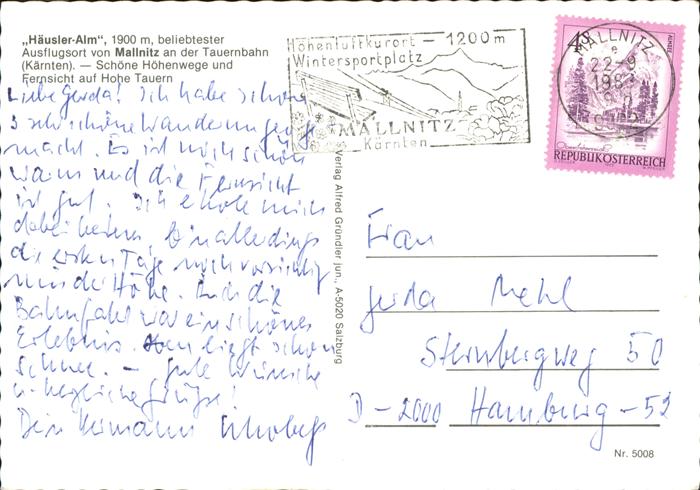 „Häusler-Alm", 1900 m, beliebtester
Ausflugsort von Mallnitz an der Tauernbahn
(Kärnten). — Schöne Höhenwege und
Fernsicht auf Hohe Tauern
Liebe Gerda! Ich habe schon
3 sehr schöne Wanderungen ge-
macht. Es ist noch schön
warm und die Fernsicht
ist gut. Ich erhole mich
dabei bestens, bin allerdings
die ersten Tage noch vorsichtig
mit der Höhe. Auch die
Bahnfahrt war ein schönes
Erlebnis. Oben liegt schon
Schnee. — Gute Wünsche
u. herzliche Grüße!
Dein Hermann
Höhenluftkurort — 1200 m
Wintersportplatz
MALLNITZ
Kärnten
MALLNITZ
e
22-9
4 S
REPUBLIK ÖSTERREICH
Verlag Alfred Gründler jun., A-5020 Salzburg
Frau
Gerda Mehl
Sternbergweg 50
D-2000 Hamburg-52
Nr. 5008